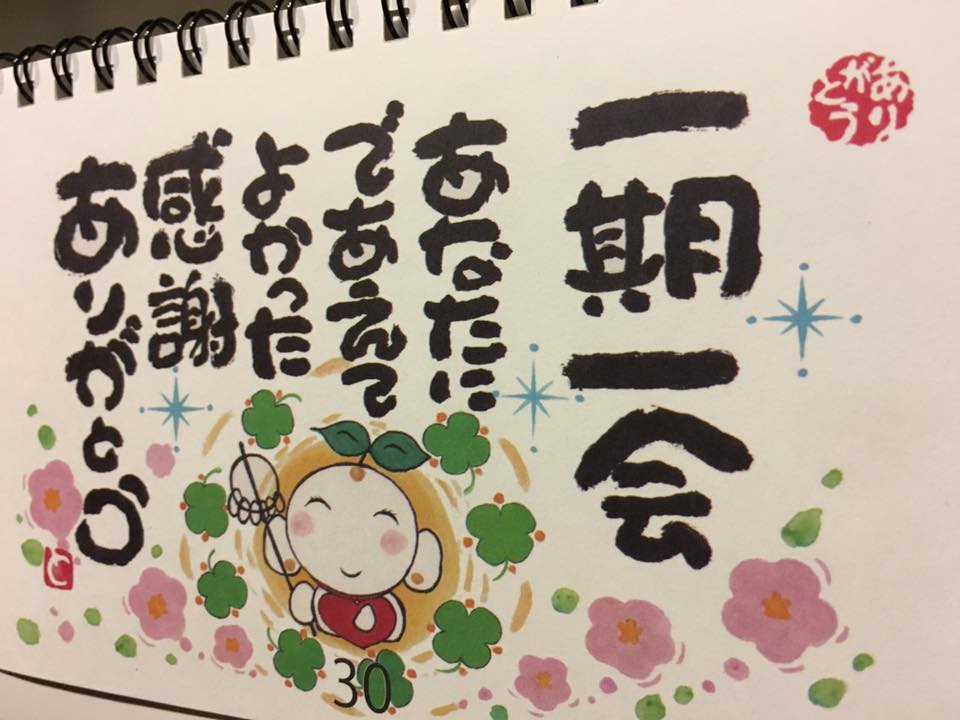 ありがとう
一期一会
あなたに
であえて
よかった
感謝
ありがとう
と
30